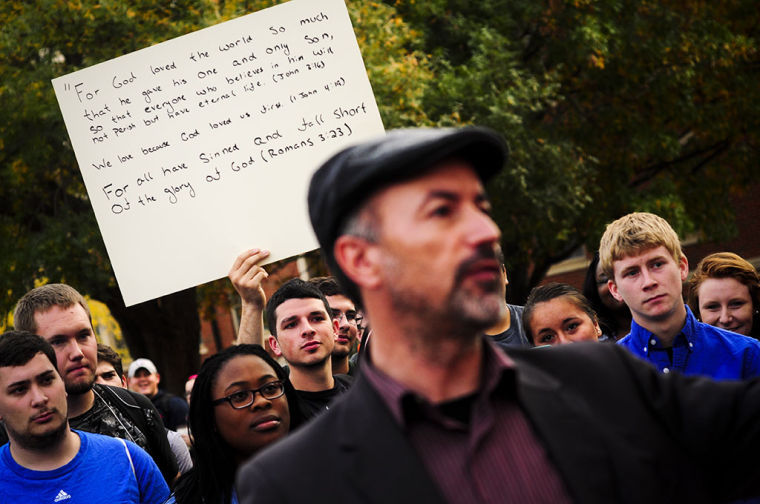 "For God loved the world so much
that he gave his one and only Son,
so that everyone who believes in him will
not perish but have eternal life. (John 3:16)
We love because God loved us first. (1 John 4:19)
For all have sinned and fall short
of the glory of God (Romans 3:23)
adidas